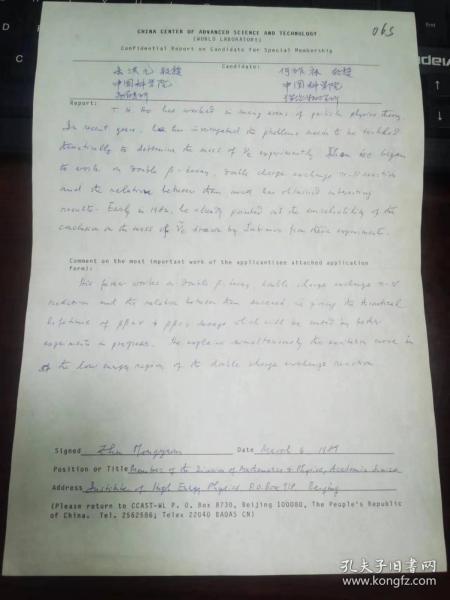 065
CHINA CENTER OF ADVANCED SCIENCE AND TECHNOLOGY
(WORLD LABORATORY)
Confidential Report on Candidate for Special Membership
Candidate:
朱洪元 教授
何祚庥 教授
中国科学院
中国科学院
Report:
T. H. Ho has worked in many areas of particle physics theory.
In recent years, has investigated the problems to be tackled
theoretically to determine the mass of νe experimentally. began
to work on double β-decay, double charge exchange reaction
and the relation between them and has obtained interesting
results. Early in 1982, he already pointed out the unreliability of the
conclusion on the mass of νe drawn by from these experiments.
Comment on the most important work of the applicant(see attached application
form):
His works on double β-decay, double charge exchange
reaction and the relation between them succeed in giving the theoretical
lifetime of decays which will be tested in
experiments in progress. He explains simultaneously the curve in
the low energy region of the double charge exchange reaction
Signed Zhu Hongyuan Date March 6, 1989
Position or Title Member of the Division of Mathematics & Physics, Academia Sinica
Address Institute of High Energy Physics P.O. Box 918 Beijing
(Please return to CCAST-WL P. O. Box 8730, Beijing 100080, The People's Republic
of China. Tel. 2562586; Telex 22040 BAOAS CN)
孔夫子旧书网
www.kongfz.com